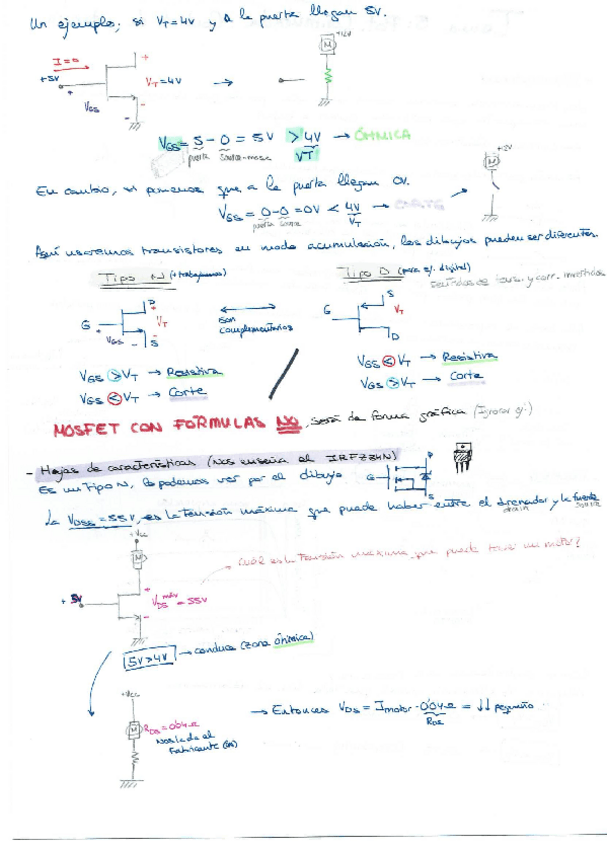 Un ejemplo; si VT=4V y a la puerta llegan 5V.
+12V
M
I=0
+
+5V
VT=4V
+
VGS
-
-
VGS = 5 - 0 = 5V > 4V → ÓHMICA
puerta
VT
+12V
M
En cambio, si ponemos que a la puerta llegan 0V.
VGS = 0-0 = 0V < 4V → CORTE
puerta source
VT
Aquí usaremos transistores en modo acumulación, los dibujos pueden ser diferentes.
Tipo N (+trabajamos)
Tipo D (para s/. digital)
sentidos de tens. y corr. invertidos
D
G
+
VT
VGS
-
S
son
complementarios
S
G
VT
D
VGS > VT → Resistiva
VGS < VT → Corte
VGS < VT → Resistiva
VGS > VT → Corte
MOSFET CON FÓRMULAS NO, será de forma gráfica
- Hojas de características (Nos enseña el IRFZ34N)
Es un tipo N, lo podemos ver por el dibujo
G
D
S
La VDSS = 55V, es la tensión máxima que puede haber entre el drenador y la fuente
drain
source
+Vcc
M
Cuál es la tensión máxima que puede tener un motor?
+ 5V
+
VDS máx = 55V
-
5V>4V → conduce (zona óhmica)
+Vcc
M
RDS = 0'04Ω
Nos la da el
Fabricante
→ Entonces VDS = Imotor · 0'04Ω = ↓↓ pequeño
RDS